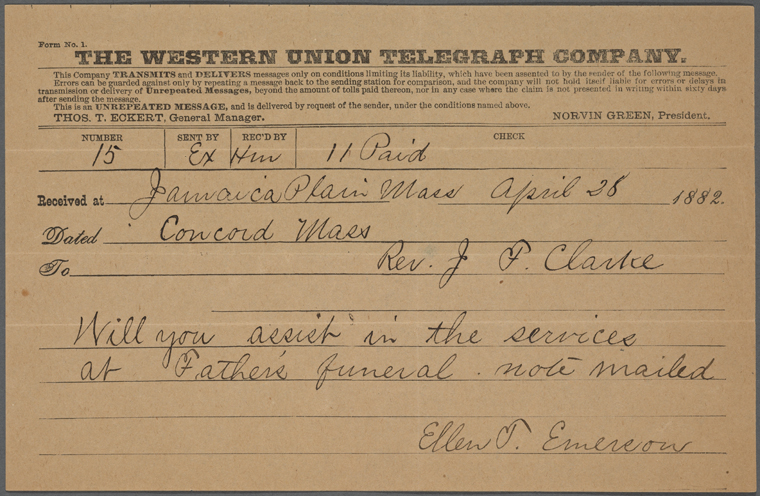 Form No. 1.
THE WESTERN UNION TELEGRAPH COMPANY.
This Company TRANSMITS and DELIVERS messages only on conditions limiting its liability, which have been assented to by the sender of the following message.
Errors can be guarded against only by repeating a message back to the sending station for comparison, and the company will not hold itself liable for errors or delays in
transmission or delivery of Unrepeated Messages, beyond the amount of tolls paid thereon, nor in any case where the claim is not presented in writing within sixty days
after sending the message.
This is an UNREPEATED MESSAGE, and is delivered by request of the sender, under the conditions named above.
THOS. T. ECKERT, General Manager. NORVIN GREEN, President.
NUMBER SENT BY REC'D BY CHECK
15 Ex Hm 11 Paid
Received at Jamaica Plain Mass April 28 1882.
Dated Concord Mass
To Rev. J F. Clarke
Will you assist in the services
at Father's funeral. note mailed
Ellen T. Emerson